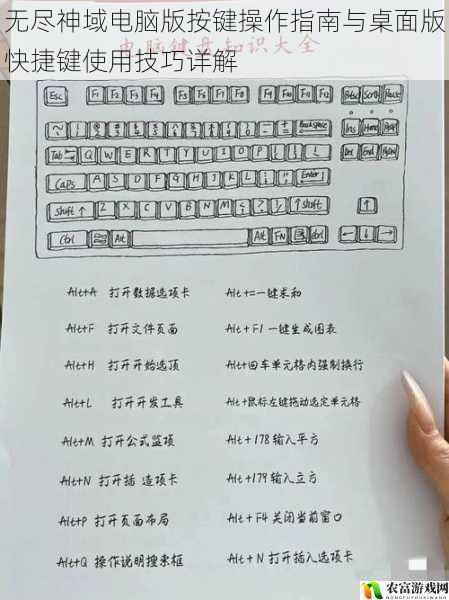 无尽神域电脑版按键操作指南与桌面版
快捷键使用技巧详解
电脑键盘知识大全
Esc F1 F2 F3 F4 F5 F6 F7 F8 F9 F10 F11 F12
Backspace
Tab Q W E R T Y U I O P
Caps A S D F G H J K L Enter
Shift ↑ Z X C V B N M ↑ Shift ↑
Ctrl Alt Alt FN Ctrl ← ↓ →
Alt+A 打开数据选项卡 Alt+=一键求和
Alt+F 打开文件页面 Alt+F1 一键生成图表
Alt+H 打开开始选顶 Alt+回车单元格内强制换行
Alt+L 打开开发工具 Alt+鼠标左键拖动选定单元格
Alt+M 打开公式蓝项 Alt+178输入平方
Alt+N 打开插 造项卡 Alt+179输入立方
Alt+P 打开页面布局 Alt+F4 关闭当前窗口
Alt+Q 操作说明搜索框 Alt+N 打开插入选项卡
农富游戏网